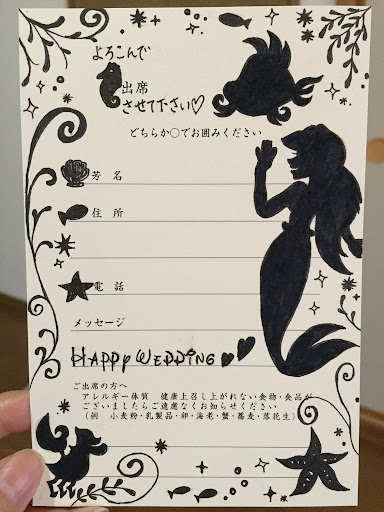 よろこんで
出席
させて下さい♡
どちらか○でお囲みください
芳名
住所
電話
メッセージ
HAPPY WEDDING♥♥
ご出席の方へ
アレルギー体質 健康上召し上がれない食物・食品が
ございましたらご遠慮なくお知らせください
(例 小麦粉・乳製品・卵・海老・蟹・蕎麦・落花生)